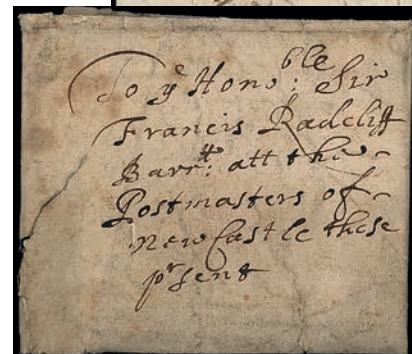 To yᵉ Honoᵇˡᵉ: Sir
Francis Radcliff
Barrᵗᵗ: att the
Postmasters of
newCastle these
pʳsent